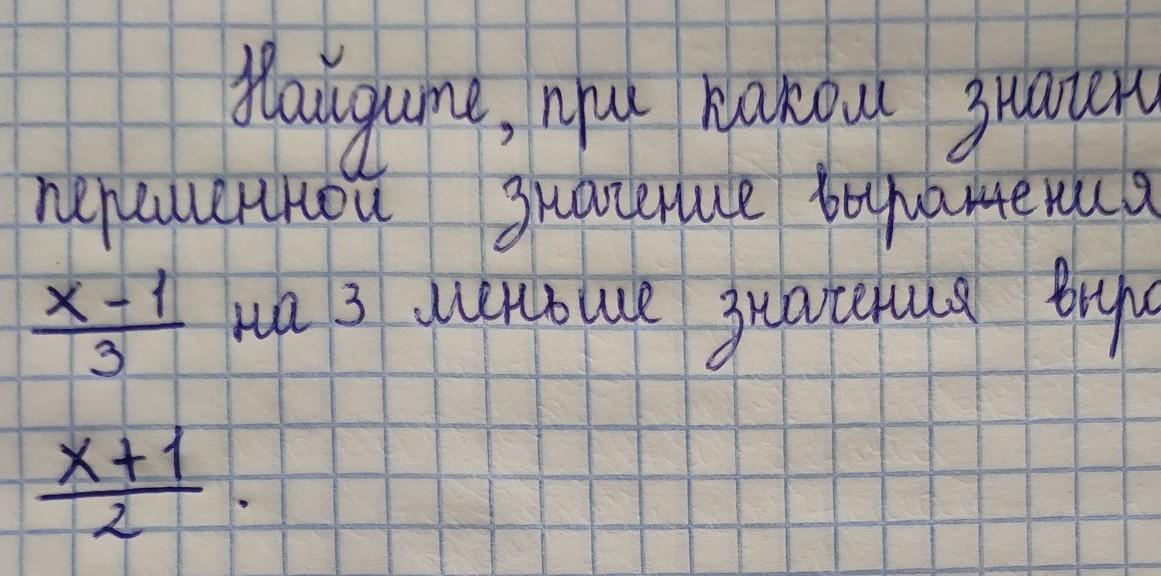 Найдите, при каком значен
переменной значение выражения
x - 1
3
на 3 меньше значения выра
x + 1
2
.